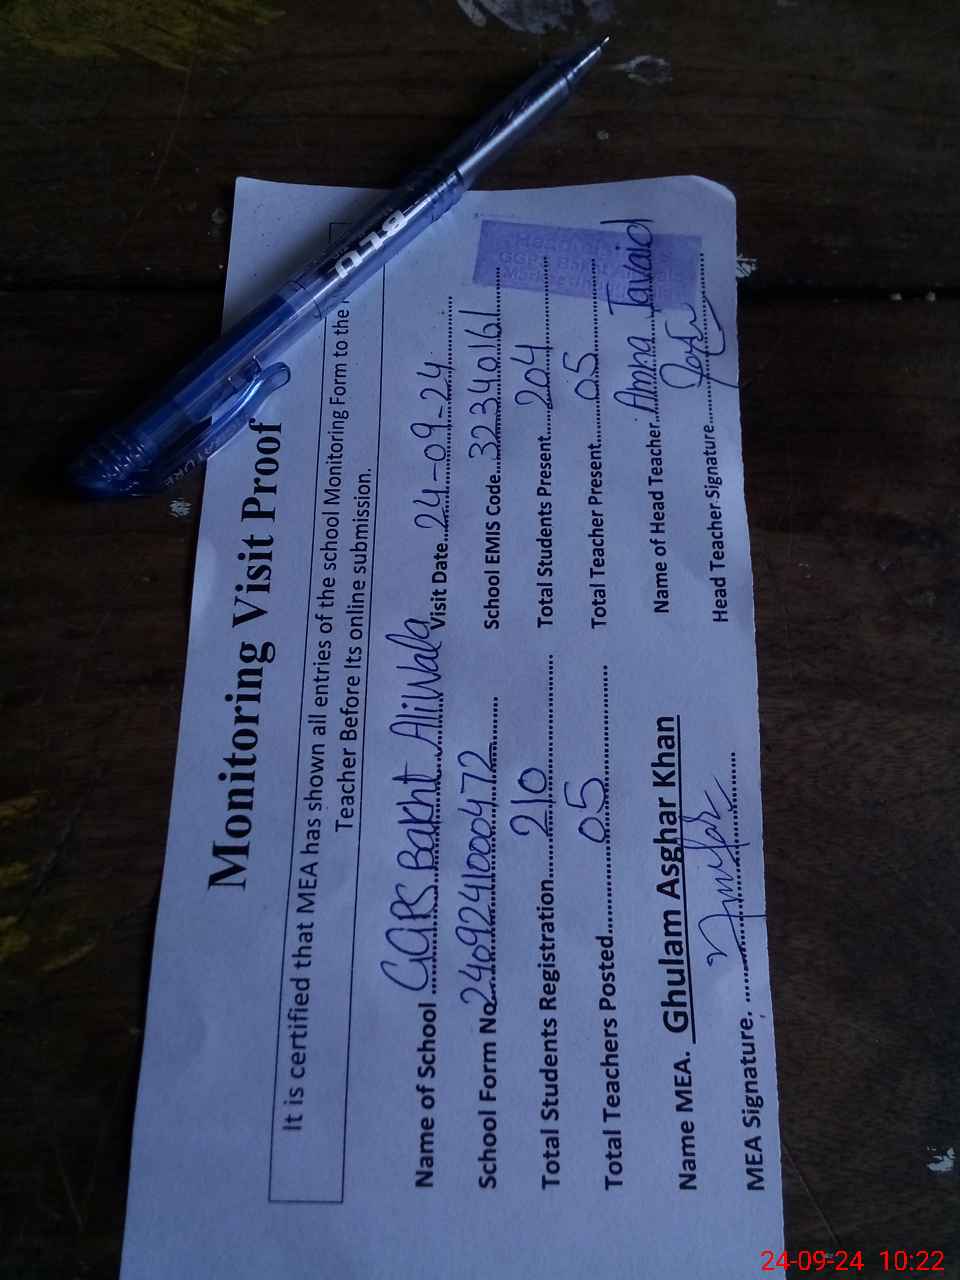 Monitoring Visit Proof
It is certified that MEA has shown all entries of the school Monitoring Form to the
Teacher Before Its online submission.
Name of School GGPS Bakht Ali Wala Visit Date 24-09-24
School Form No. 2409241000472 School EMIS Code 32340161
Total Students Registration 210 Total Students Present 204
Total Teachers Posted 05 Total Teacher Present 05
Name MEA. Ghulam Asghar Khan Name of Head Teacher Amna Javaid
MEA Signature. Head Teacher Signature
GGPS Bakht
24-09-24 10:22